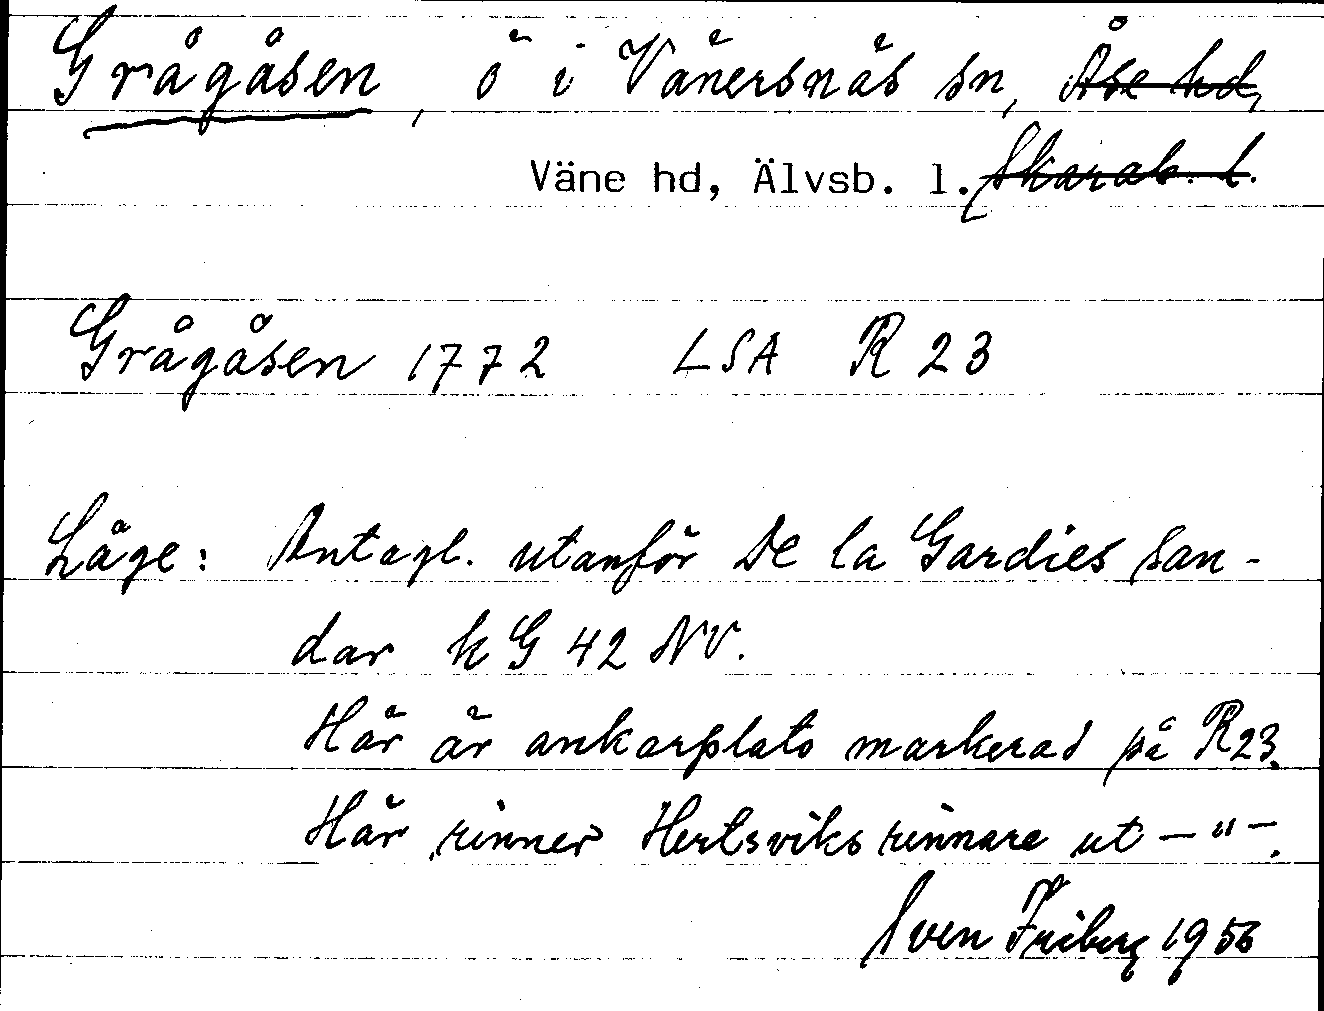 Grågåsen, ö i Vänersnäs sn, Åse hd,
Väne hd, Älvsb. l. Skarab. l.
Grågåsen 1772 LSA R 23
Läge: Antagl. utanför De la Gardies san-
dar kG 42 NV.
Här är ankarplats markerad på R23.
Här rinner Hertsviks rinnare ut —"—.
Sven Friberg 1956